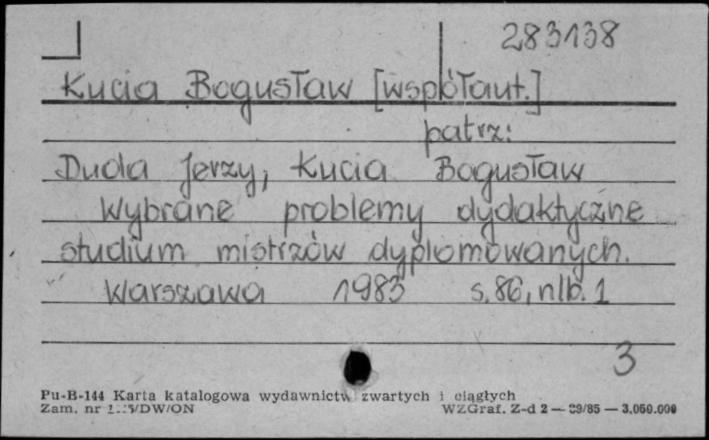 283138
Kucia Bogusław [współaut.]
patrz:
Duda Jerzy, Kucia Bogusław
Wybrane problemy dydaktyczne
studium mistrzów dyplomowanych.
Warszawa 1983 s. 86, nlb. 1
3
Pu-B-144 Karta katalogowa wydawnictw zwartych i ciągłych
Zam. nr /DW/ON WZGraf. Z-d 2 — 89/85 — 3.050.000